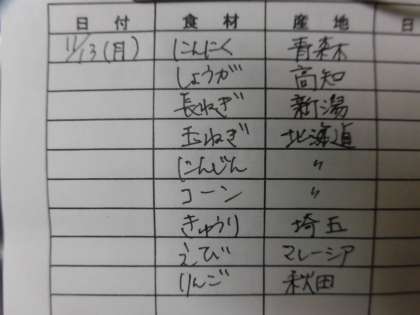 日付 食材 産地 日
11/13(月) にんにく 青森
しょうが 高知
長ねぎ 新潟
玉ねぎ 北海道
にんじん 〃
コーン 〃
きゅうり 埼玉
えび マレーシア
りんご 秋田